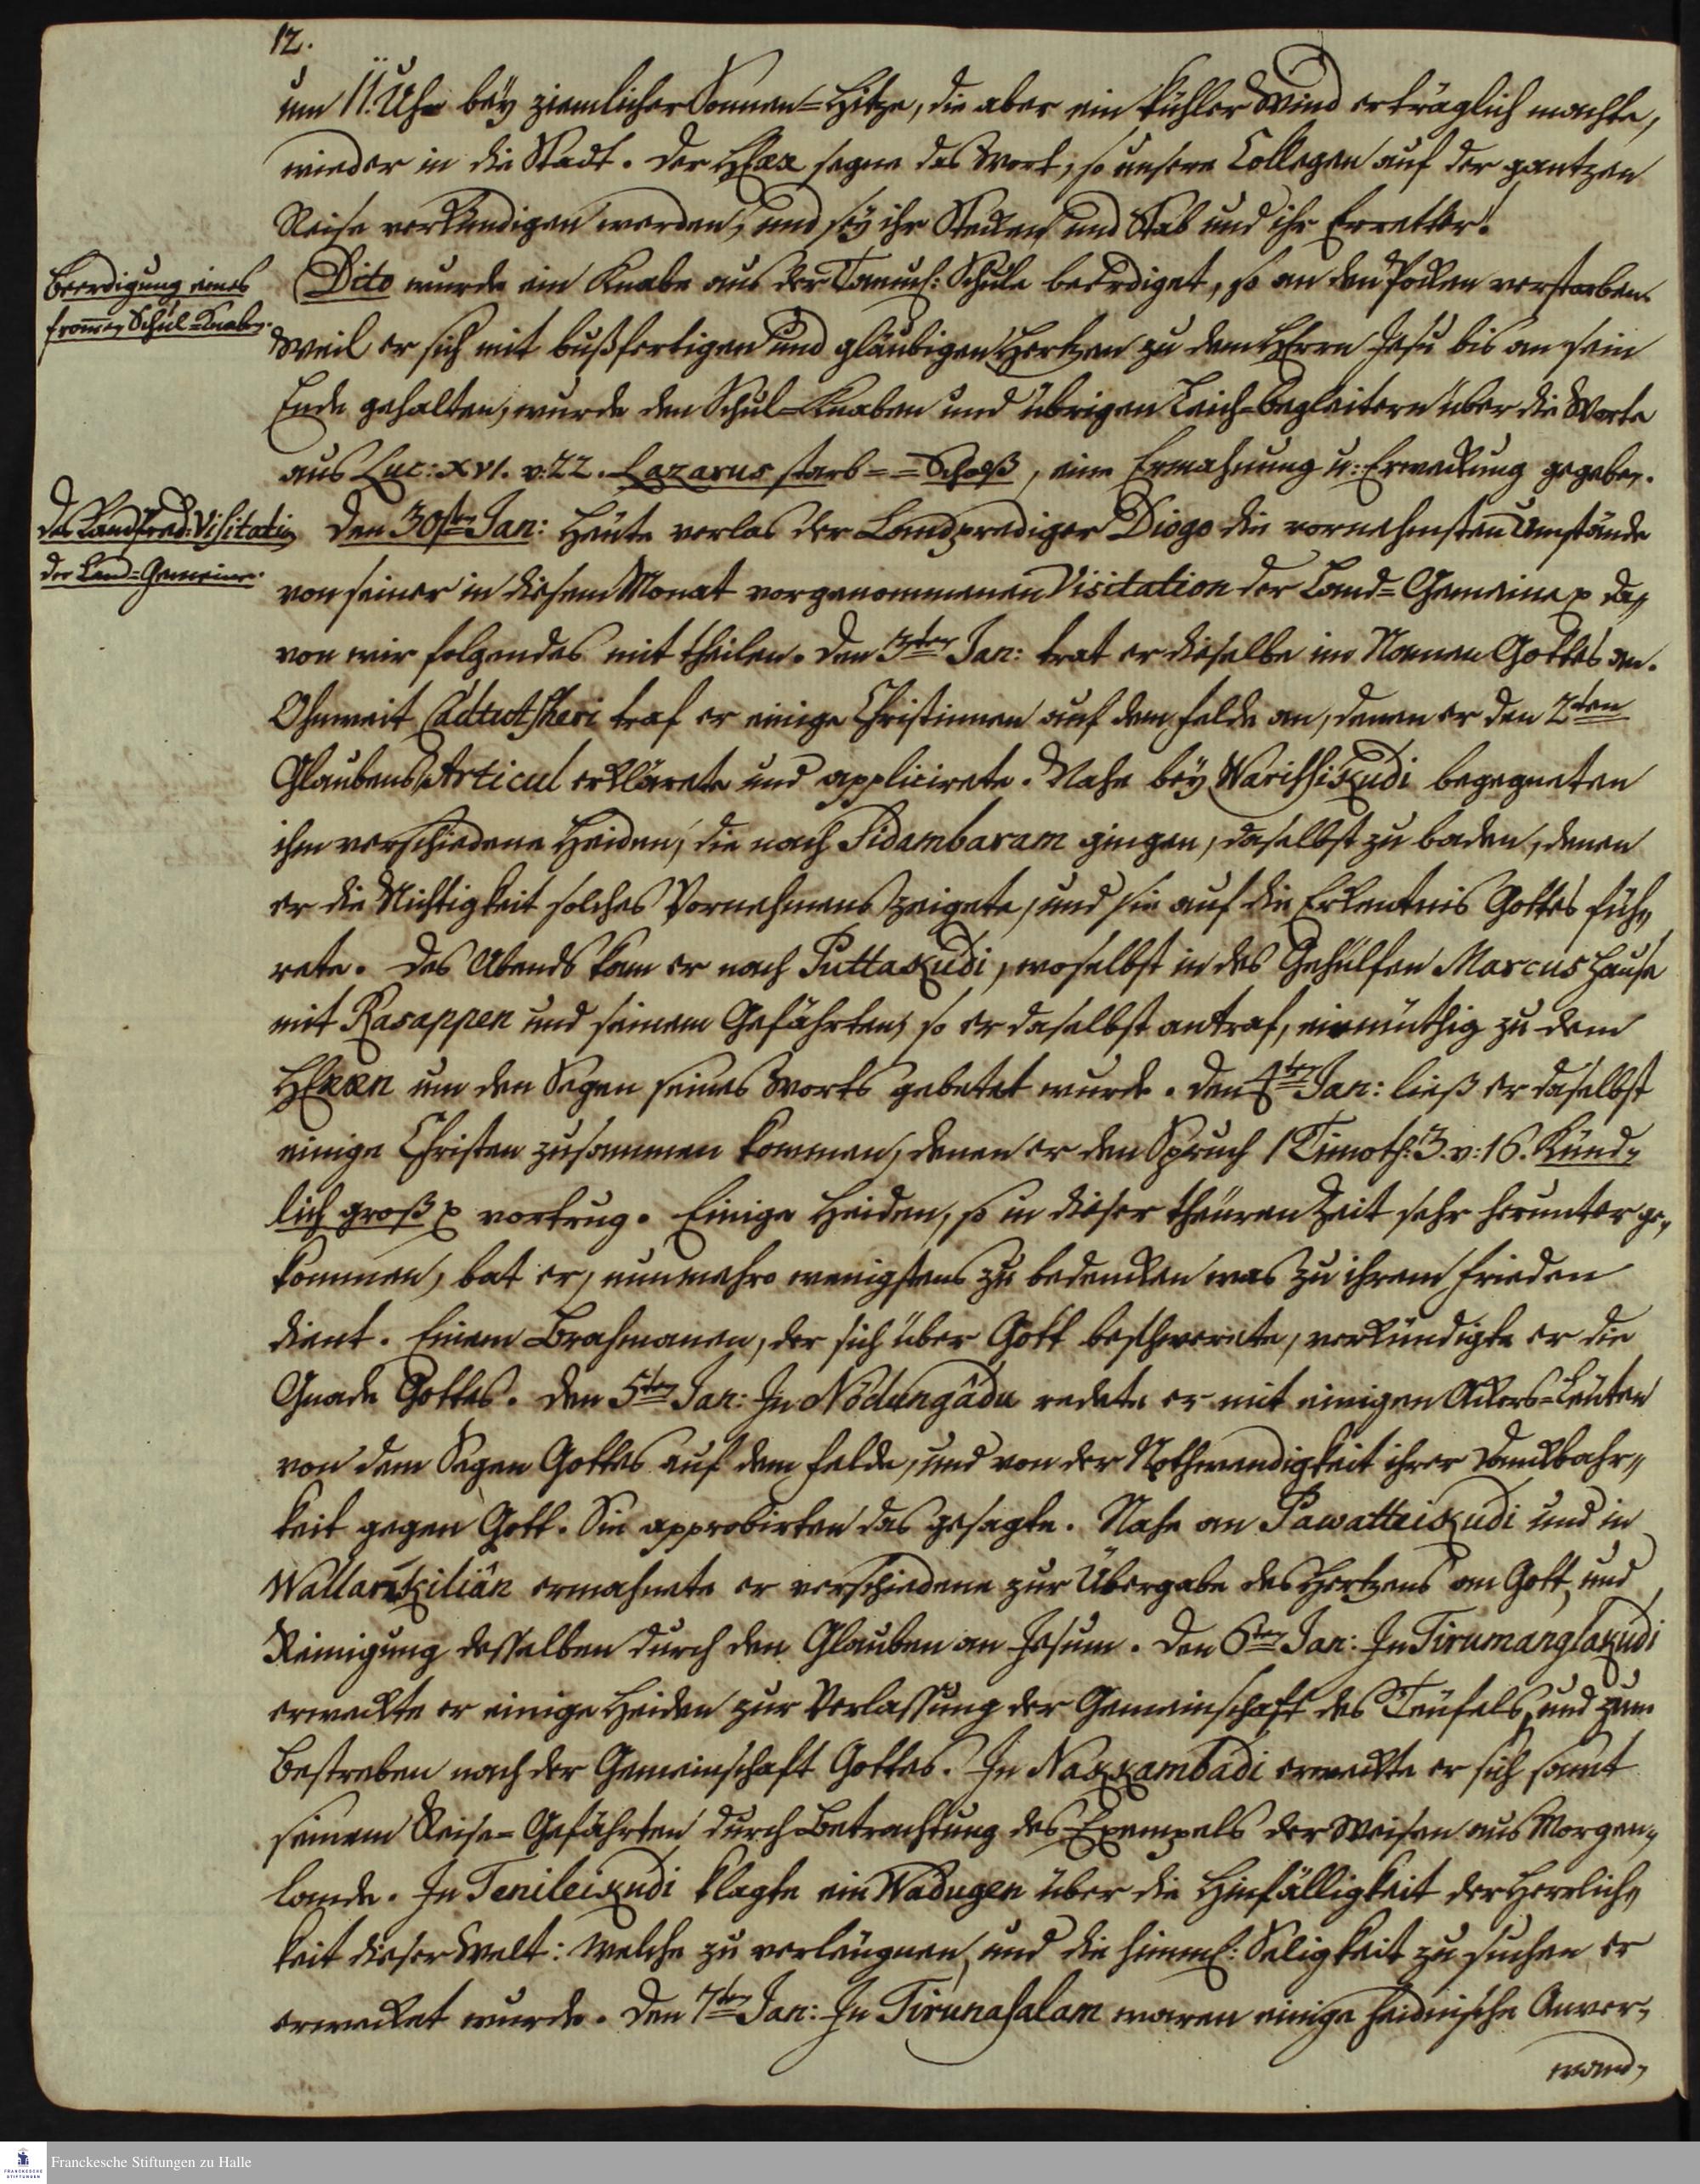 12.
um 11. Uhr bey ziemlicher Sonnen-Hitze, die aber ein kühler Wind erträglich machte,
wieder in die Stadt. Der HErr segne das Wort, so unsere Collegen auf der gantzen
Reise verkündigen werden, und sey ihr Stecken und Stab und ihr Erretter!
Beerdigung eines
from̄en Schul-Knaben.
Dito wurde ein Knabe aus der Tamul: Schule beerdiget, so an den Pocken verstorben.
Weil er sich mit bußfertigen und gläubigen Hertzen zu dem HErrn Jesu bis an sein
Ende gehalten, wurde den Schul-Knaben und übrigen Leich-Begleitern über die Worte
aus Luc: XVI. v: 22. Lazarus starb = = Schoß, eine Ermahnung u: Erweckung gegeben.
Des Landpred: Visitation
der Land-Gemeine.
Den 30sten Jan: Heute verlas der Landprediger Diogo die vornehmsten Umstände
von seiner in diesem Monat vorgenommenen Visitation der Land-Gemeine p da,,
von wir folgendes mit theilen. Den 3ten Jan: trat er dieselbe im Namen Gottes an.
Ohnweit Cádtutſheri traf er einige Christinnen auf dem Felde an, denen er den 2ten
Glaubens Articul erklärete und applicirete. Nahe bey Wariſſikudi begegneten
ihm verschiedene Heiden, die nach Sidambaram gingen, daselbst zu baden, denen
er die Nichtigkeit solches Vornehmens zeigete, und sie auf die Erkentnis Gottes füh,,
rete. Des Abends kam er nach Puttakudi, woselbst in des Gehülfen Marcus Hause
mit Rasappen und seinem Gefährten, so er daselbst antraf, einmüthig zu dem
HErrn um den Segen seines Worts gebetet wurde. Den 4ten Jan: ließ er daselbst
einige Christen zusammen kommen, denen er den Spruch 1 Timoth: 3. v: 16. Künd,,
lich groß p vortrug. Einige Heiden, so in dieser theuren Zeit sehr herunter ge,,
kommen, bat er, nunmehro wenigstens zu bedencken was zu ihrem Frieden
dient. Einem Brahmanen, der sich über Gott beschwerete, verkündigte er die
Gnade Gottes. Den 5ten Jan: In Nödungâdu redete er mit einigen Ackers-Leuten
von dem Segen Gottes auf dem Felde, und von der Nothwendigkeit ihrer Danckbahr,,
keit gegen Gott. Sie approbirten das gesagte. Nahe an Pawatteikudi und in
Wallarikiliân ermahnete er verschiedene zur Übergabe des Hertzens an Gott, und
Reinigung desselben durch den Glauben an Jesum. Den 6ten Jan: In Tirumanglakudi
erweckte er einige Heiden zur Verlassung der Gemeinschaft des Teufels, und zum
Bestreben nach der Gemeinschaft Gottes. In Nakkambadi erweckte er sich samt
seinem Reise-Gefährten durch Betrachtung des Exempels der Weisen aus Morgen,,
lande. In Tenileikudi klagte ein Wadugen über die Hinfälligkeit der Herrlich,,
keit dieser Welt: welche zu verleugnen, und die himml: Seligkeit zu suchen er
erwecket wurde. Den 7ten Jan: In Tirunasalam waren einige heidnische Anver,,
wand,,
Franckesche Stiftungen zu Halle